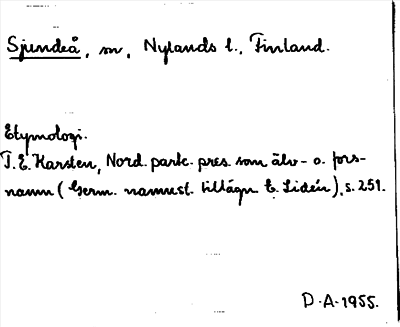 Sjundeå, sn, Nylands l., Finland.
Etymologi.
T. E. Karsten, Nord. partc. pres. som älv- o. fors-
namn (Germ. namnst. tillägn. E. Lidén), s. 251.
D. A. 1955.